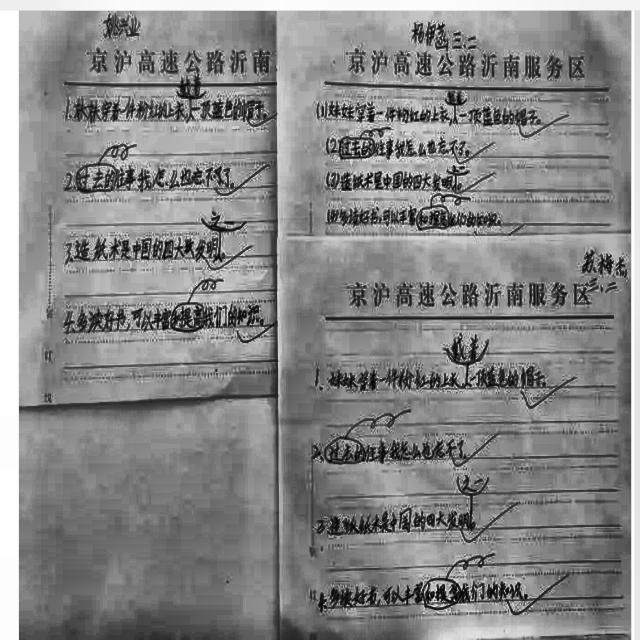 姚兴业
京沪高速公路沂南
戴着
1.妹妹穿着一件粉红的上衣,一顶蓝色的帽子。
2.过去的往事我怎么也忘不了。
之一
3.造纸术是中国的四大发明。
4.多读好书,可以丰富和提高我们的知识。
三.二
京沪高速公路沂南服务区
戴着
(1)妹妹穿着一件粉红的上衣,一顶蓝色的帽子。
(2)过去的往事我怎么也忘不了。
之一
(3)造纸术是中国的四大发明。
(4)多读好书,可以丰富和提高我们的知识。
苏梓杰
三.二
京沪高速公路沂南服务区
戴着
1.妹妹穿着一件粉红的上衣,一顶蓝色的帽子。
2.过去的往事我怎么也忘不了。
之一
3.造纸术是中国的四大发明。
4.多读好书,可以丰富和提高我们的知识。